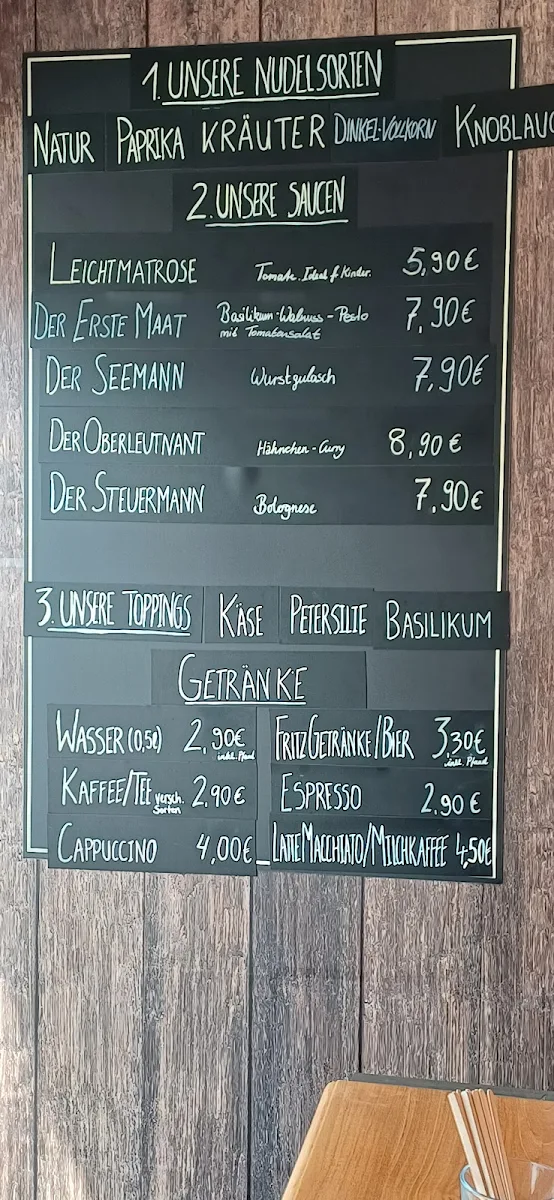 1. UNSERE NUDELSORTEN
NATUR PAPRIKA KRÄUTER DINKEL-VOLLKORN KNOBLAUC
2. UNSERE SAUCEN
LEICHTMATROSE Tomate. Ideal f. Kinder. 5,90€
DER ERSTE MAAT Basilikum-Walnuss-Pesto 7,90€
mit Tomatensalat
DER SEEMANN Wurstgulasch 7,90€
DER OBERLEUTNANT Hähnchen-Curry 8,90€
DER STEUERMANN Bolognese 7,90€
3. UNSERE TOPPINGS KÄSE PETERSILIE BASILIKUM
GETRÄNKE
WASSER (0,5ℓ) 2,90€ inkl. Pfand FRITZGETRÄNKE/BIER 3,30€ inkl. Pfand
KAFFEE/TEE versch. Sorten 2,90€ ESPRESSO 2,90€
CAPPUCCINO 4,00€ LATTE MACCHIATO/MILCHKAFFEE 4,50€